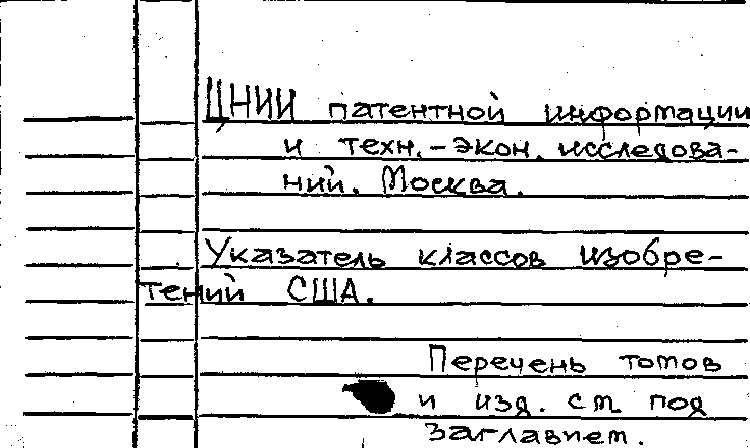 ЦНИИ патентной информации
и техн.-экон. исследова-
ний. Москва.
Указатель классов изобре-
тений США.
Перечень томов
и изд. см под
заглавием.